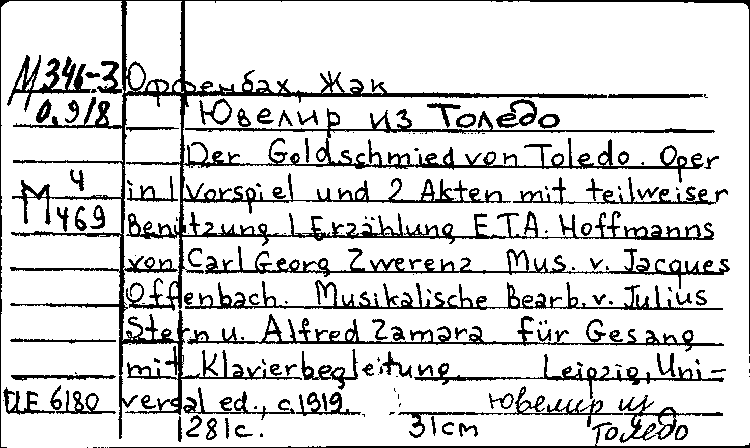 М 346-3 Оффенбах, Жак
0.918 Ювелир из Толедо
Der Goldschmied von Toledo. Oper
М 4 in 1 Vorspiel und 2 Akten mit teilweiser
469 Benutzung 1 Erzählung E.T.A. Hoffmanns
von Carl Georg Zwerenz. Mus. v. Jacques
Offenbach. Musikalische Bearb. v. Julius
Stern u. Alfred Zamara für Gesang
mit Klavierbegleitung. Leipzig, Uni-
UE 6180 versal ed., c.1919. Ювелир из
281с. 31cm Толедо